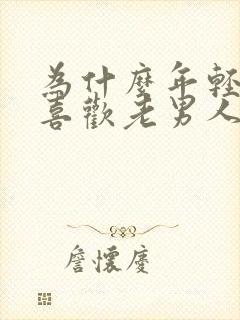 為什麼年輕
喜歡老男人
詹懷慶